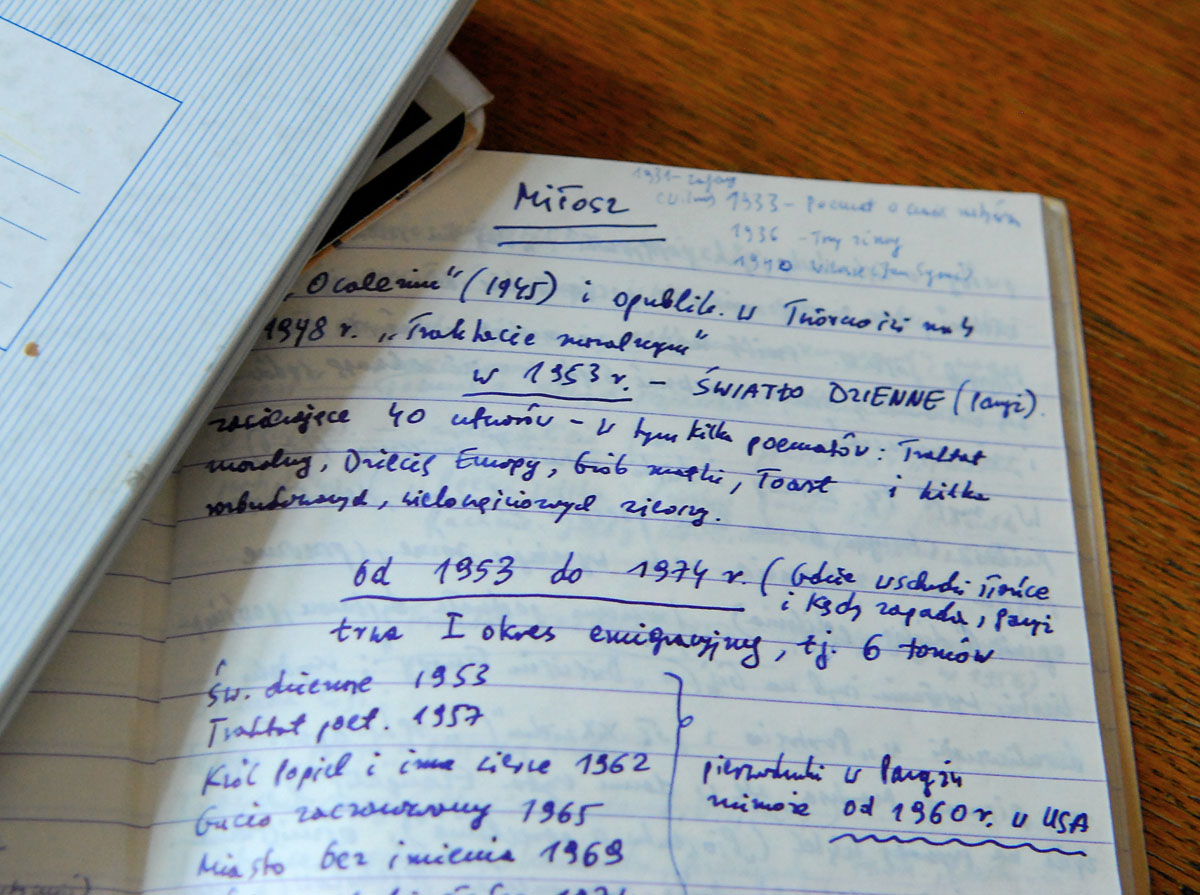 Miłosz
1931 -
1933 - Poemat o
1936 - Trzy zimy
1940
„Ocalenie" (1945) i opublik. w Twórczości nr 4
1948 r. „Traktacie moralnym"
w 1953 r. - ŚWIATŁO DZIENNE (Paryż).
zawierające 40 utworów - w tym kilka poematów: Traktat
moralny, Dziecię Europy, Grób matki, Toast i kilka
rozbudowanych, wieloczęściowych
od 1953 do 1974 r. (Gdzie wschodzi słońce
i kędy zapada, Paryż
trwa I okres emigracyjny, tj. 6 tomów
Św. dzienne 1953
Traktat poet. 1957
Król Popiel i inne wiersze 1962
Gucio zaczarowany 1965
Miasto bez imienia 1969
pierwodruki w Paryżu
mimoże od 1960 r. w USA